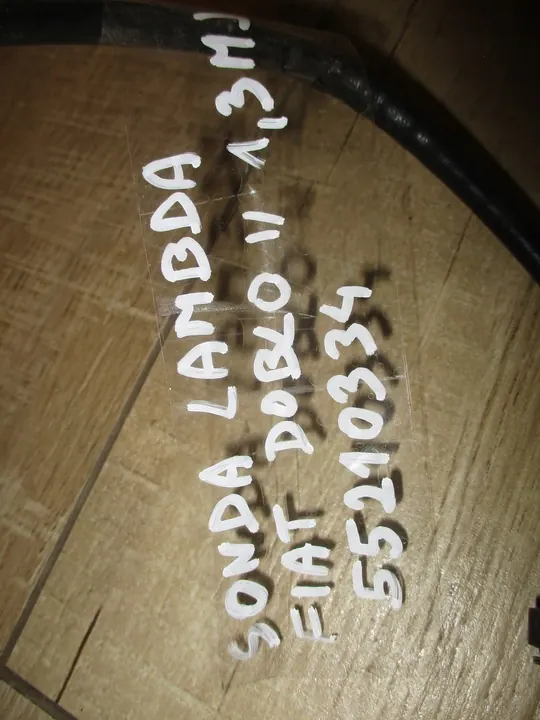 SONDA LAMBDA
FIAT DOBLO II 1,3MJ
55210334